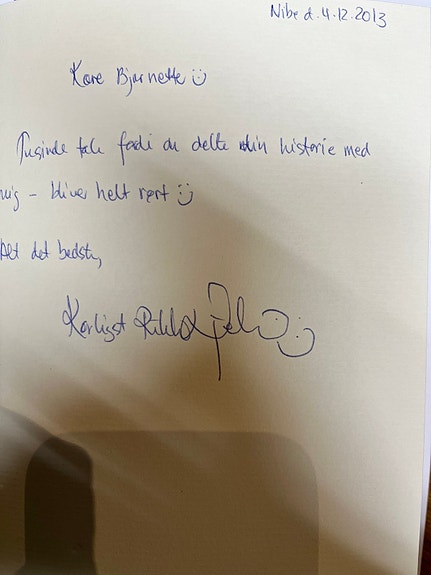 Nibe d. 4.12.2013
Kære Bjarnette
Tusinde tak fordi du delte din historie med
mig - bliver helt rørt
Alt det bedste,
Kærligst